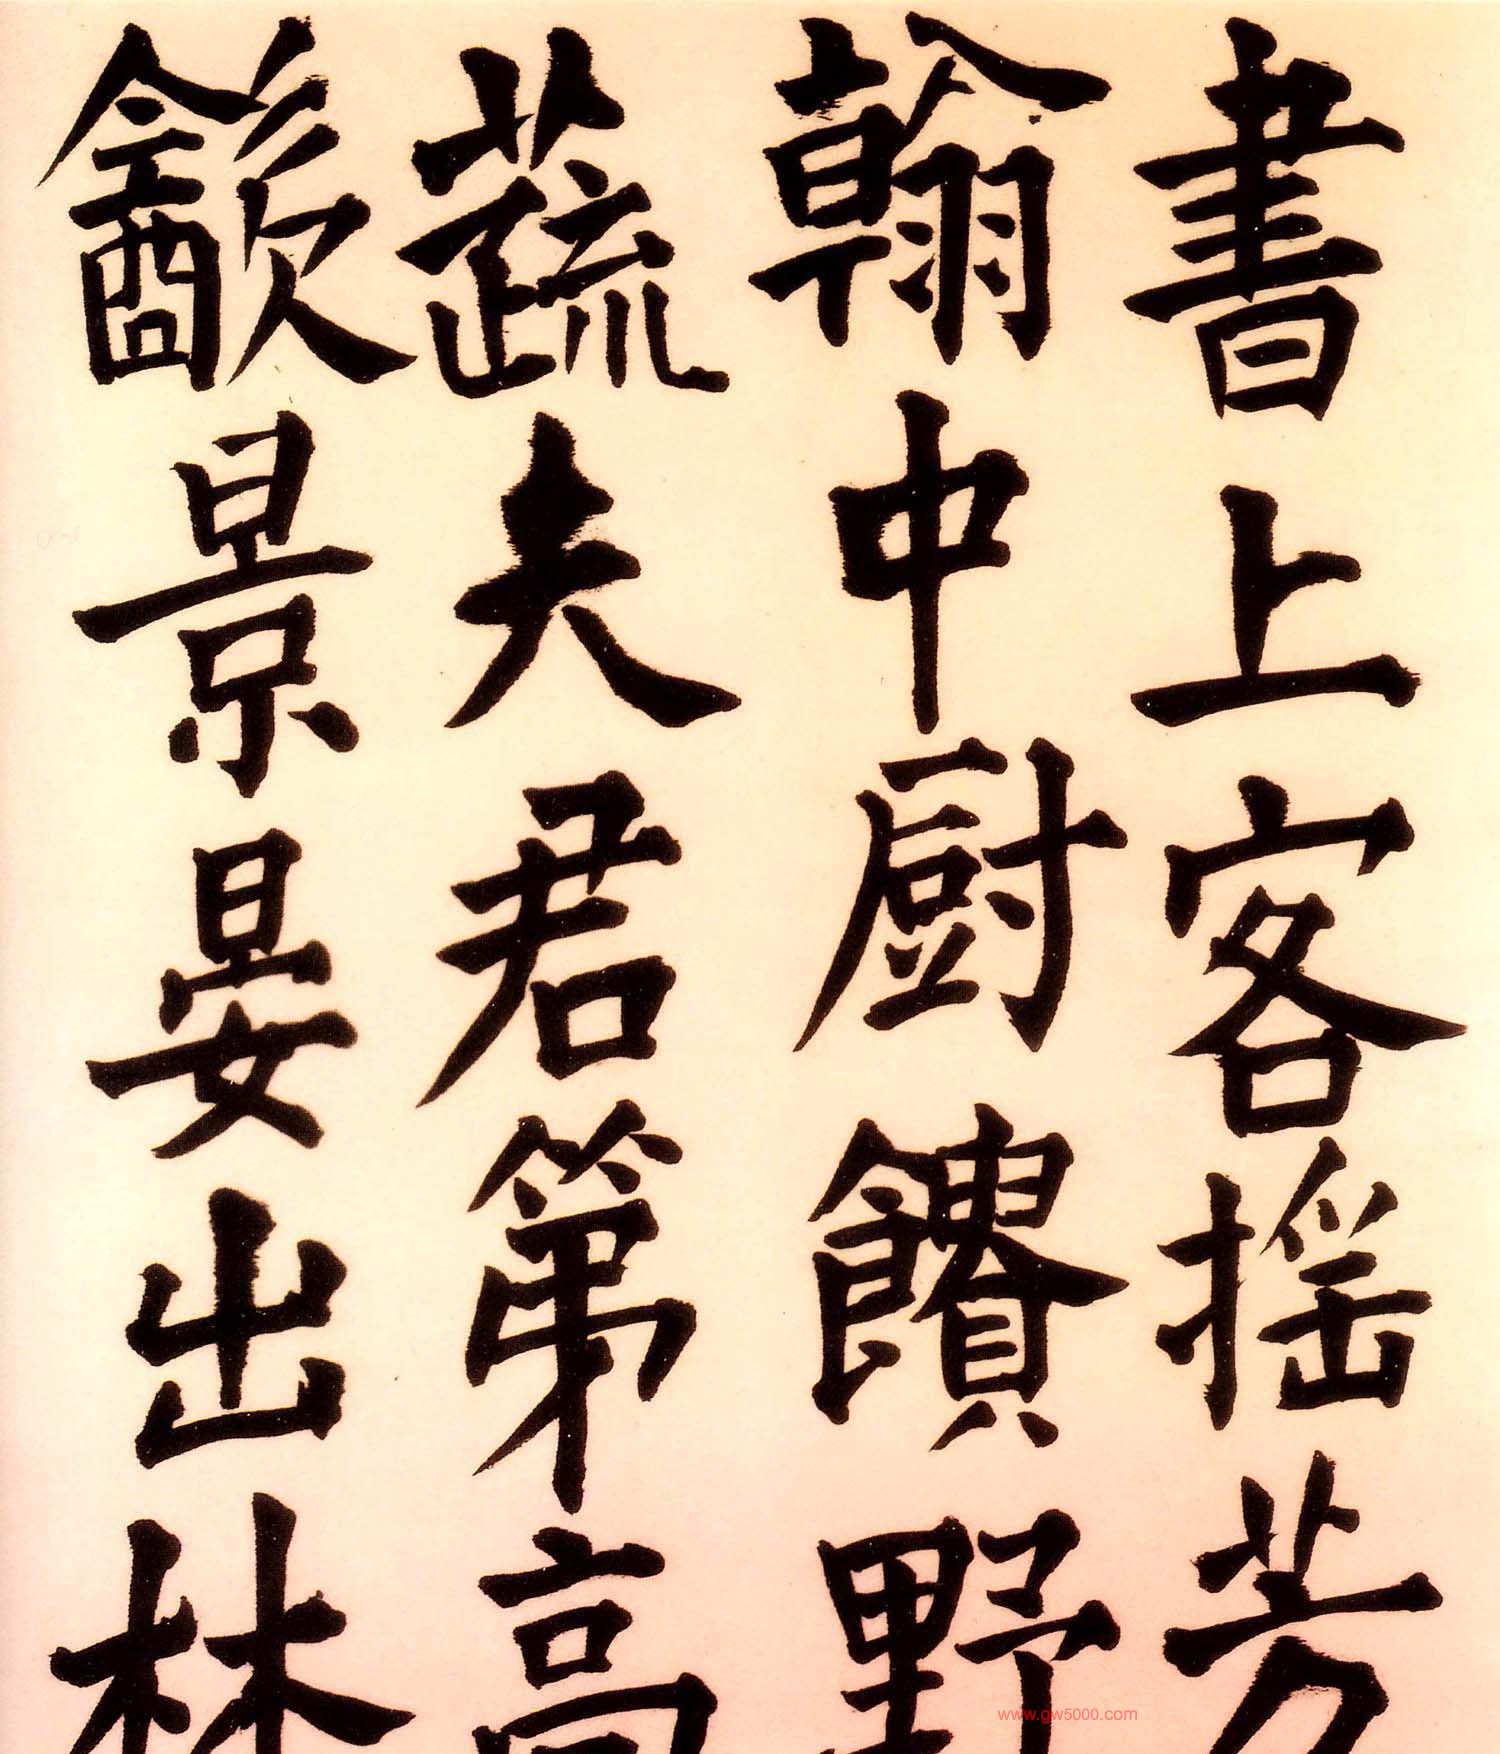 書上客搖芳
翰中厨饋野
蔬夫君第高
飲景晏出林
www.gw5000.com